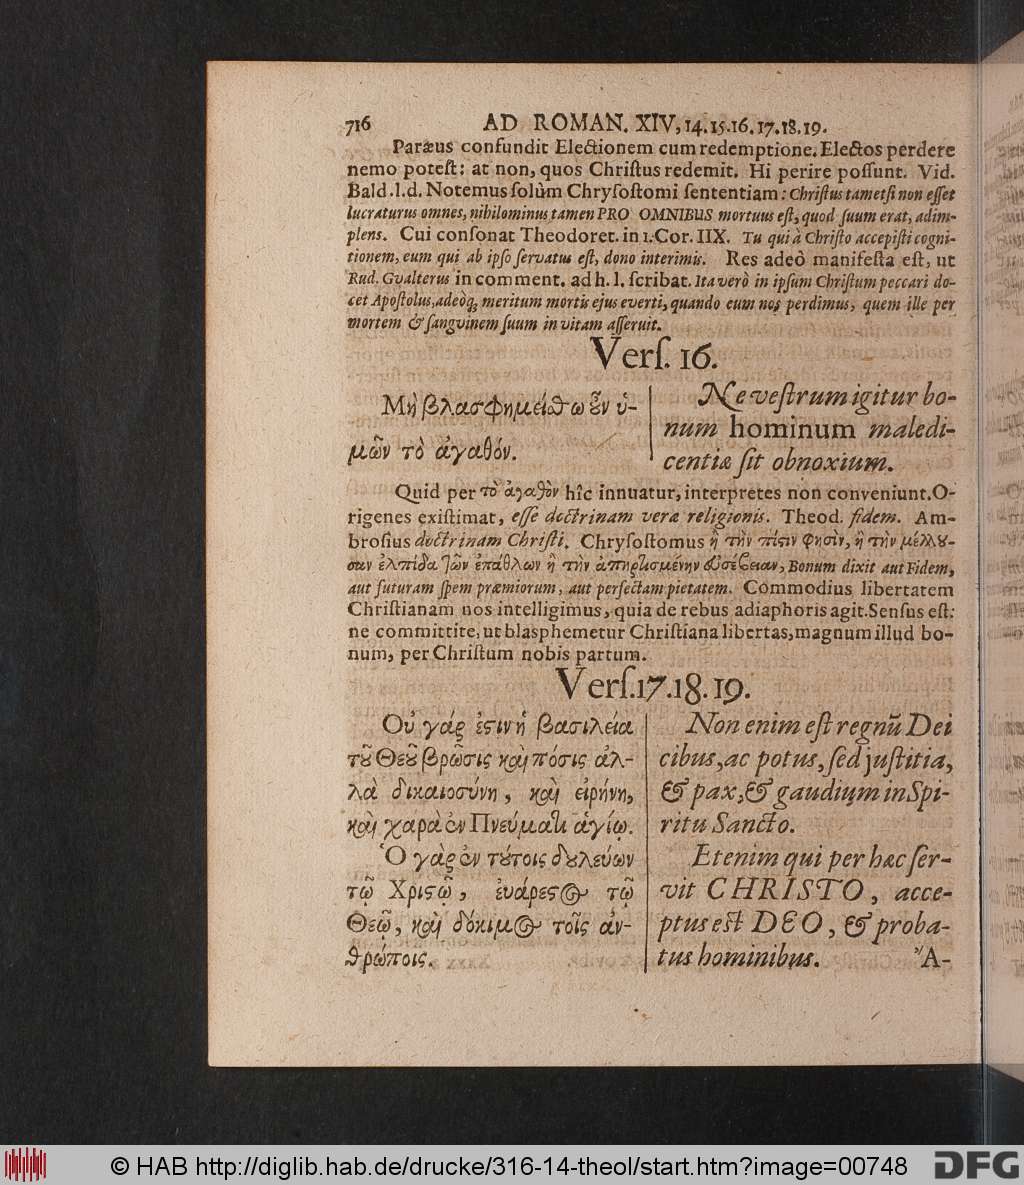 716 AD ROMAN. XIV, 14.15.16.17.18.19.
Paræus confundit Electionem cum redemptione. Electos perdere
nemo poteſt: at non, quos Chriſtus redemit. Hi perire poſſunt. Vid.
Bald. l.d. Notemus ſolùm Chryſoſtomi ſententiam: Chriſtus tametſi non eſſet
lucraturus omnes, nihilominus tamen PRO OMNIBUS mortuus eſt, quod ſuum erat, adim-
plens. Cui conſonat Theodoret. in 1. Cor. IIX. Tu qui à Chriſto accepiſti cogni-
tionem, eum qui ab ipſo ſervatus eſt, dono interimis. Res adeò manifeſta eſt, ut
Rud. Gvalterus in comment. ad h. l. ſcribat. Ita verò in ipſum Chriſtum peccari do-
cet Apoſtolus, adeòq; meritum mortis ejus everti, quando eum nos perdimus, quem ille per
mortem & ſangvinem ſuum in vitam aſſeruit.
Verſ. 16.
Μὴ βλασφημείσθω ȣ̓͂ν ὑ-
μῶν τὸ ἀγαθόν.
Ne veſtrum igitur bo-
num hominum maledi-
centiæ ſit obnoxium.
Quid per τὸ ἀγαθὸν hîc innuatur, interpretes non conveniunt. O-
rigenes exiſtimat, eſſe doctrinam veræ religionis. Theod. fidem. Am-
broſius doctrinam Chriſti. Chryſoſtomus ἢ τὴν πίϛιν φησὶν, ἢ τὴν μέλλȣ-
σαν ἐλπίδα τῶν ἐπάθλων ἢ τὴν ἀπηρτισμένην εὐσέβειαν, Bonum dixit aut Fidem,
aut futuram ſpem præmiorum, aut perfectam pietatem. Commodius libertatem
Chriſtianam nos intelligimus, quia de rebus adiaphoris agit. Senſus eſt:
ne committite, ut blasphemetur Chriſtiana libertas, magnum illud bo-
num, per Chriſtum nobis partum.
Verſ. 17. 18. 19.
Οὐ γάρ ἐϛιν ἡ βασιλεία
τȣ͂ Θεȣ͂ βρῶσις καὶ πόσις ἀλ-
λὰ δικαιοσύνη, καὶ εἰρήνη,
καὶ χαρὰ ἐν Πνεύματι ἁγίῳ.
Ὁ γὰρ ἐν τȣ́τοις δȣλεύων
τῷ Χριϛῷ, ἐυάρεϛος τῷ
Θεῷ, καὶ δόκιμος τοῖς ἀν-
θρώποις.
Non enim eſt regnū Dei
cibus, ac potus, ſed juſtitia,
& pax, & gaudium in Spi-
ritu Sancto.
Etenim qui per hæc ſer-
vit CHRISTO, acce-
ptus eſt DEO, & proba-
tus hominibus.
Ἄ-
© HAB http://diglib.hab.de/drucke/316-14-theol/start.htm?image=00748 DFG